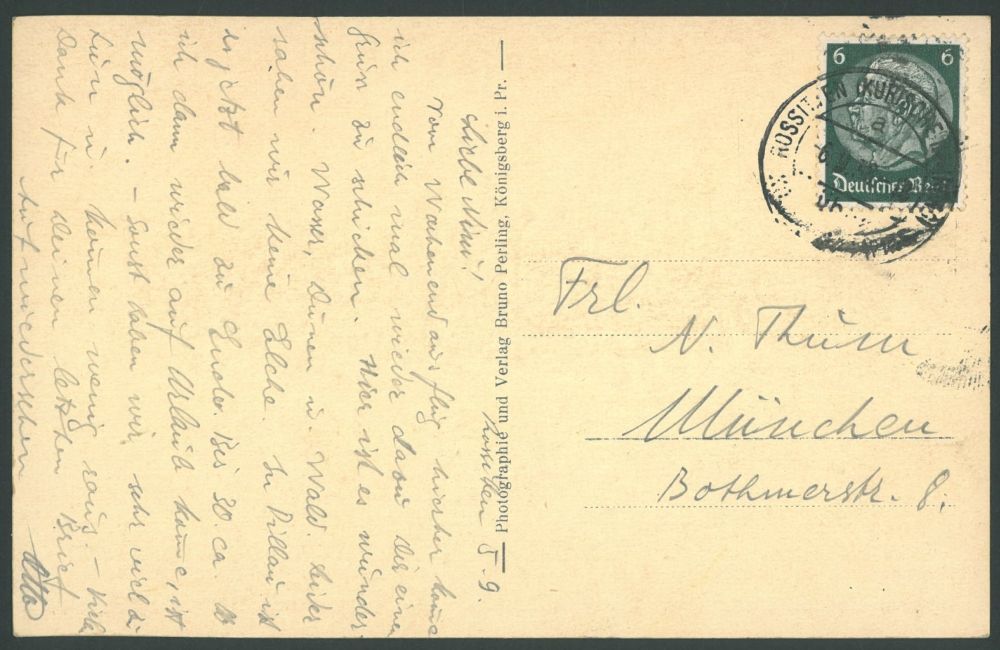 Rossitten 5.9.
Liebe Nini!
Vom Wochendausflug hierher komme
ich endlich mal wieder dazu Dir einen
Gruss zu schicken. Hier ist es wunder-
schön. Wasser, Dünen u. Wald. Leider
sahen wir keine Elche. In Pillau ist
es jetzt bald zu Ende. Bis 20. ca. Ob
ich dann wieder auf Urlaub komme, ist
möglich. – Sonst haben wir sehr viel zu
tun u. kommen wenig raus. – Vielen
Dank für Deinen letzten Brief.
Auf Wiedersehen
Otto
Photographie und Verlag Bruno Perling, Königsberg i. Pr.
6 6
Deutsches Reich
ROSSITTEN (KURISCHE
Frl.
N. Thürn
München
Bothmerstr. 8.